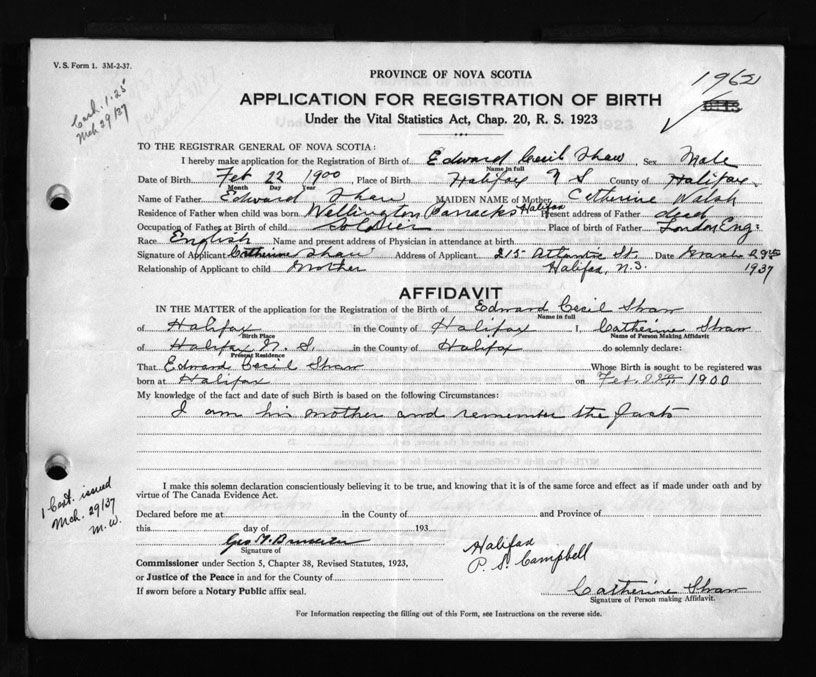 V. S. Form 1. 3M-2-37.
Cash. 1.25
Mch 29/37
PROVINCE OF NOVA SCOTIA
1962
APPLICATION FOR REGISTRATION OF BIRTH
Under the Vital Statistics Act, Chap. 20, R. S. 1923
TO THE REGISTRAR GENERAL OF NOVA SCOTIA:
I hereby make application for the Registration of Birth of Edward Cecil Shaw, Sex Male
Name in full
Date of Birth Feb 22 1900 Place of Birth Halifax N S County of Halifax
Month Day Year
Name of Father Edward Shaw MAIDEN NAME of Mother Catherine Walsh
Residence of Father when child was born Wellington Barracks Halifax Present address of Father dead
Occupation of Father at Birth of child Soldier Place of birth of Father London Eng:
Race English Name and present address of Physician in attendance at birth
Signature of Applicant Catherine Shaw Address of Applicant 215 Atlantic St. Date March 29th
Relationship of Applicant to child Mother Halifax, N.S. 1937
AFFIDAVIT
IN THE MATTER of the application for the Registration of the Birth of Edward Cecil Shaw
Name in full
of Halifax in the County of Halifax I, Catherine Shaw
Birth Place Name of Person Making Affidavit
of Halifax N. S. in the County of Halifax do solemnly declare:
Present Residence
That Edward Cecil Shaw Whose Birth is sought to be registered was
born at Halifax on Feb. 22nd 1900
My knowledge of the fact and date of such Birth is based on the following Circumstances:
I am his mother and remember the facts
I make this solemn declaration conscientiously believing it to be true, and knowing that it is of the same force and effect as if made under oath and by
virtue of The Canada Evidence Act.
1 Cert. issued
Mch. 29/37
M. W.
Declared before me at in the County of and Province of
this day of 193
Signature of
Halifax
P. S. Campbell
Commissioner under Section 5, Chapter 38, Revised Statutes, 1923,
or Justice of the Peace in and for the County of
If sworn before a Notary Public affix seal.
Catherine Shaw
Signature of Person making Affidavit.
For Information respecting the filling out of this Form, see Instructions on the reverse side.